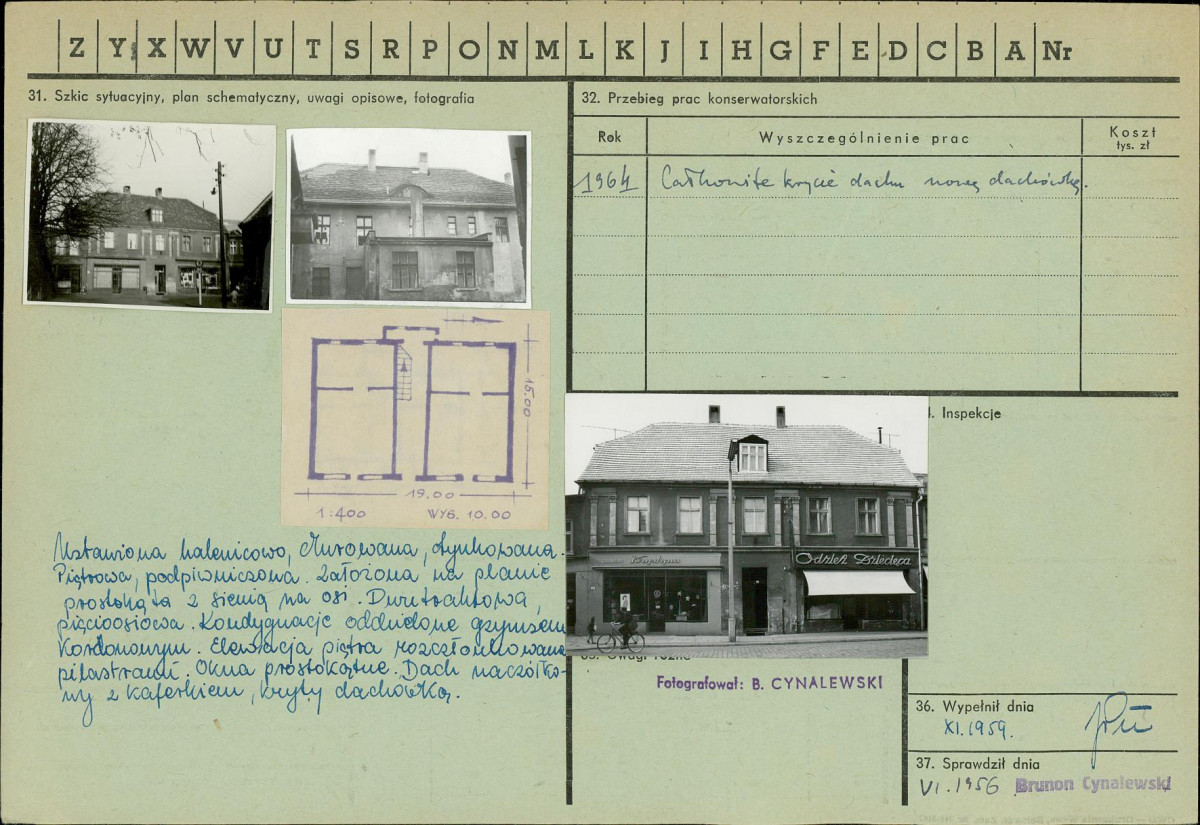 Z Y X W V U T S R P O N M L K J I H G F E D C B A Nr
31. Szkic sytuacyjny, plan schematyczny, uwagi opisowe, fotografia
15.00
19.00
1:400 WYS. 10.00
Ustawiona kalenicowo, Murowana, tynkowana.
Piętrowa, podpiwniczona. Założona na planie
prostokąta z sienią na osi. Dwutraktowa,
pięcioosiowa. Kondygnacje oddzielone gzymsem
Kordonowym. Elewacja piętra rozczłonkowana
pilastrami. Okna prostokątne. Dach naczółko-
wy z kaferkiem, kryty dachówką.
32. Przebieg prac konserwatorskich
Rok Wyszczególnienie prac Koszt
tys. zł
1964 Całkowite krycie dachu nową dachówką.
Inspekcje
Odzież Dziecięca
Uwagi różne
Fotografował: B. CYNALEWSKI
36. Wypełnił dnia
XI.1959.
37. Sprawdził dnia
VI.1956 Brunon Cynalewski